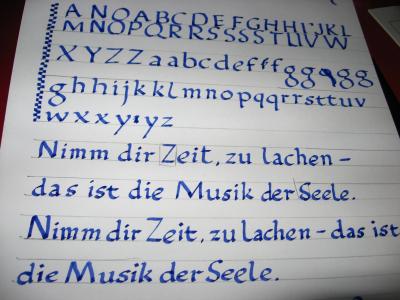 A NOABCDEFGHHIJKL
MNOPQRRSSSSTUVW
XYZZaabcdefffgggg
ghhijkklmnopqqrrsttuv
wxxyyyz
Nimm dir Zeit, zu lachen –
das ist die Musik der Seele.
Nimm dir Zeit, zu lachen – das ist
die Musik der Seele.